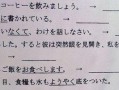 コーヒーを飲みましょう。 →
に書かれている。 →
いなくて、わけを話しなさい。 →
した。すると彼は突然銀を見開き、私を
→
ご飯をお食べします。 →
日、食糧も水もようやく底をついた。